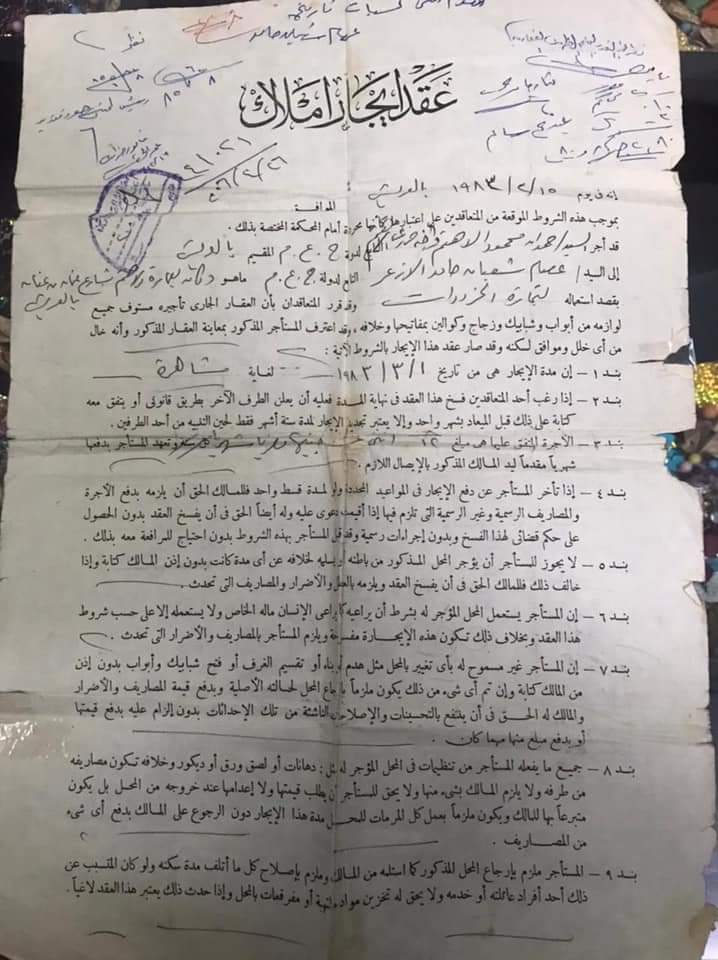 عصام شعبان حامد
نظر
عقد إيجار أملاك
٤١٠٢١
إنه فى يوم ١٩٨٣/٢/١٥ بالعريش الموافق
بموجب هذه الشروط الموقعة من المتعاقدين على اعتبارها محررة أمام المحكمة المختصة بذلك .
قد أجر السيد / حمدان محمود التابع لدولة ج . ع . م المقيم بالعريش
إلى السيد / عصام شعبان حامد الأزعر التابع لدولة ج . ع . م ما هو دكانه بعمارة شارع
بقصد استعماله لتجارة الخردوات وقد قرر المتعاقدان بأن العقار الجارى تأجيره مستوف جميع بالعريش
لوازمه من أبواب وشبابيك وزجاج وكوالين بمفاتيحها وخلافه وقد اعترف المستأجر المذكور بمعاينة العقار المذكور وأنه خال
من أى خلل وموافق لسكنه وقد صار عقد هذا الإيجار بالشروط الآتية :
بند ١ – إن مدة الإيجار هى من تاريخ ١٩٨٣/٣/١ لغاية مشاهرة
بند ٢ – إذا رغب أحد المتعاقدين فسخ هذا العقد فى نهاية المدة فعليه أن يعلن الطرف الآخر بطريق قانونى أو يتفق معه
كتابة على ذلك قبل الميعاد بشهر واحد وإلا يعتبر تجديد الإيجار لمدة ستة أشهر فقط لحين التنبيه من أحد الطرفين .
بند ٣ – الأجرة المتفق عليها هى مبلغ ١٢ وتعهد المستأجر بدفعها
شهرياً مقدماً ليد المالك المذكور بالإيصال اللازم .
بند ٤ – إذا تأخر المستأجر عن دفع الإيجار فى المواعيد المحددة ولو لمدة قسط واحد فللمالك الحق أن يلزمه بدفع الأجرة
والمصاريف الرسمية وغير الرسمية التى تلزم فيها إذا أقيمت دعوى عليه وله أيضاً الحق فى أن يفسخ العقد بدون الحصول
على حكم قضائى لهذا الفسخ وبدون إجراءات رسمية وقد قبل المستأجر بهذه الشروط بدون احتياج للمرافعة معه بذلك .
بند ٥ – لا يجوز للمستأجر أن يؤجر المحل المذكور من باطنه أو يسلمه لخلافه عن أى مدة كانت بدون إذن المالك كتابة وإذا
خالف ذلك فللمالك الحق فى أن يفسخ العقد ويلزمه بالعطل والأضرار والمصاريف التى تحدث .
بند ٦ – إن المستأجر يستعمل المحل المؤجر له بشرط أن يراعيه كما يراعى الإنسان ماله الخاص ولا يستعمله إلا على حسب شروط
هذا العقد وبخلاف ذلك تكون هذه الإيجارة مفسوخة ويلزم المستأجر بالمصاريف والأضرار التى تحدث .
بند ٧ – إن المستأجر غير مسموح له بأى تغيير بالمحل مثل هدم أو بناء أو تقسيم الغرف أو فتح شبابيك وأبواب بدون إذن
من المالك كتابة وإن تم أى شىء من ذلك يكون ملزماً بإرجاع المحل لحالته الأصلية وبدفع قيمة المصاريف والأضرار
والمالك له الحق فى أن ينتفع بالتحسينات والإصلاحات الناشئة من تلك الإحداثات بدون إلزام عليه بدفع قيمتها
أو بدفع مبلغ منها مهما كان .
بند ٨ – جميع ما يفعله المستأجر من تنظيمات فى المحل المؤجر له مثل : دهانات أو لصق ورق أو ديكور وخلافه تكون مصاريفه
من طرفه ولا يلزم المالك بشىء منها ولا يحق للمستأجر أن يطلب قيمتها ولا إعدامها عند خروجه من المحل بل يكون
متبرعاً بها للمالك ويكون ملزماً بعمل كل المرمات للمحل مدة هذا الإيجار دون الرجوع على المالك بدفع أى شىء
من المصاريف .
بند ٩ – المستأجر ملزم بإرجاع المحل المذكور كما استلمه من المالك وملزم بإصلاح كل ما أتلف مدة سكنه ولو كان المتسبب عن
ذلك أحد أفراد عائلته أو خدمه ولا يحق له تخزين مواد ملتهبة أو مفرقعات بالمحل وإذا حدث ذلك يعتبر هذا العقد لاغياً .